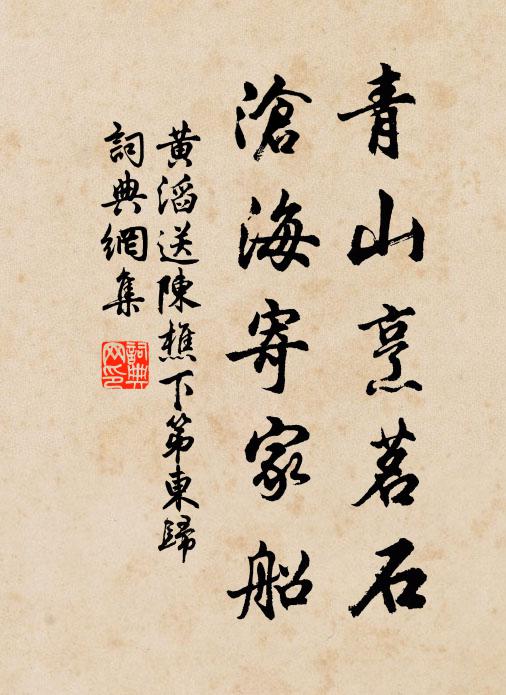 青山烹茗石
滄海寄家船
黃滔送陳樵下第東歸
詞典網集
詞典网印